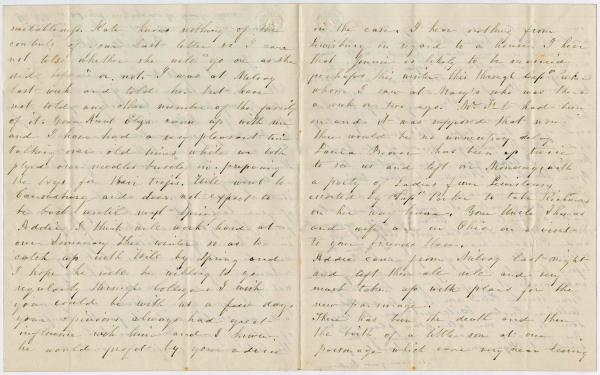 Kate knows nothing of the
contents of your last letter so I can
not tell whether she will "go on as she
did before" or not. I was at Milroy
last week and told her but have
not told any other member of the family
of it. Your Aunt Eliza came up with me
and I have had a very pleasant time
talking over old times while we both
plyed our needles busily in preparing
the boys for their trips. Will went to
and does not expect to
be back until next Spring
Addie I think will work hard at
our Seminary this winter so as to
catch up with Will by Spring and
I hope he will be willing to go
regularly through College. I wish
you could be with us a few days
your opinions always had great
influence with him and I know
he would profit by your advice
in the case. I hear nothing from
Lewisburg in regard to a house. I hear
that Jennie is likely to be married
perhaps this winter this through Capt
whom I saw at Mary's who was there
a week or two ago.
on and it was supposed that now
there would be no unnecessary delay
Laura has been up
to see us and left on Monday with
a party of Ladies from Lewisburg
escorted by Capt to take
on her way home. Your Uncle Thomas
and wife are in Ohio on a visit
to your friends there.
Addie came from Milroy last night
and left them all well and very
much taken up with plans for the
new parsonage.
There has been the death and then
the birth of a little son at our
parsonage which came very near leaving